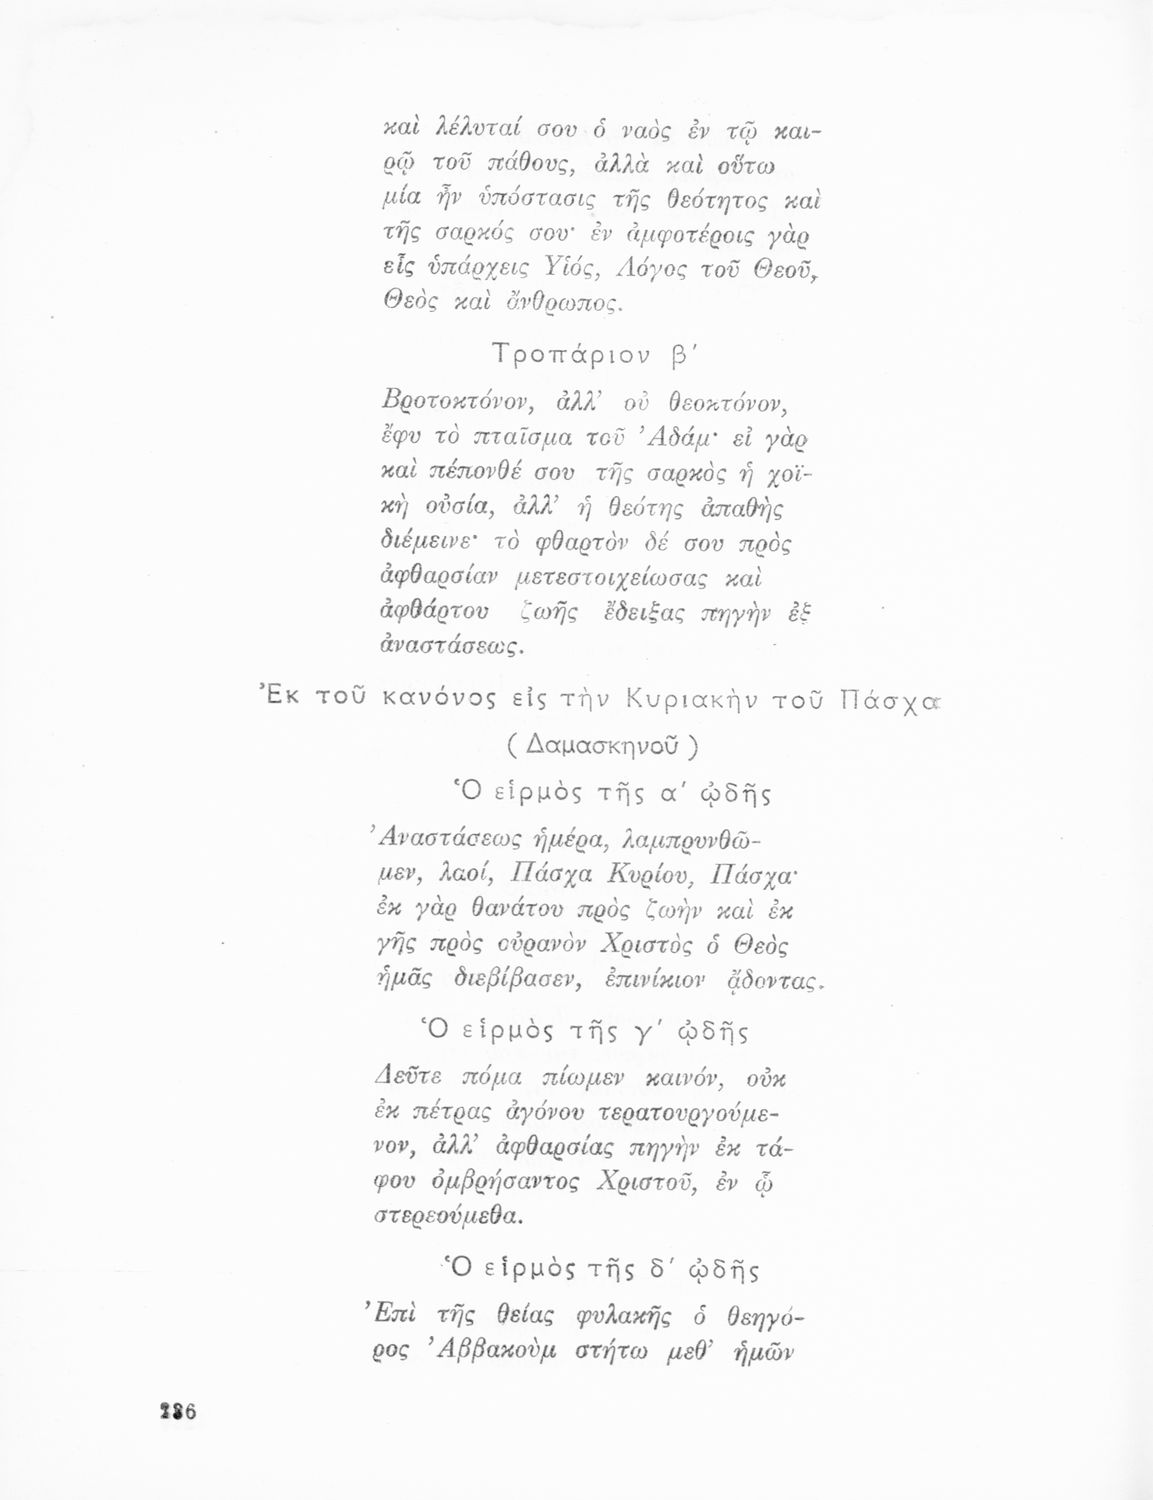 καὶ λέλυταί σου ὁ ναὸς ἐν τῷ και-
ρῷ τοῦ πάθους, ἀλλὰ καὶ οὕτω
μία ἦν ὑπόστασις τῆς θεότητος καὶ
τῆς σαρκός σου· ἐν ἀμφοτέροις γὰρ
εἷς ὑπάρχεις Υἱός, Λόγος τοῦ Θεοῦ,
Θεὸς καὶ ἄνθρωπος.
Τροπάριον β′
Βροτοκτόνον, ἀλλ’ οὐ θεοκτόνον,
ἔφυ τὸ πταῖσμα τοῦ Ἀδάμ· εἰ γὰρ
καὶ πέπονθέ σου τῆς σαρκὸς ἡ χοϊ-
κὴ οὐσία, ἀλλ’ ἡ θεότης ἀπαθὴς
διέμεινε· τὸ φθαρτὸν δέ σου πρὸς
ἀφθαρσίαν μετεστοιχείωσας καὶ
ἀφθάρτου ζωῆς ἔδειξας πηγὴν ἐξ
ἀναστάσεως.
Ἐκ τοῦ κανόνος εἰς τὴν Κυριακὴν τοῦ Πάσχα
( Δαμασκηνοῦ )
Ὁ εἱρμὸς τῆς α′ ᾠδῆς
Ἀναστάσεως ἡμέρα, λαμπρυνθῶ-
μεν, λαοί, Πάσχα Κυρίου, Πάσχα·
ἐκ γὰρ θανάτου πρὸς ζωὴν καὶ ἐκ
γῆς πρὸς οὐρανὸν Χριστὸς ὁ Θεὸς
ἡμᾶς διεβίβασεν, ἐπινίκιον ᾄδοντας.
Ὁ εἱρμὸς τῆς γ′ ᾠδῆς
Δεῦτε πόμα πίωμεν καινόν, οὐκ
ἐκ πέτρας ἀγόνου τερατουργούμε-
νον, ἀλλ’ ἀφθαρσίας πηγὴν ἐκ τά-
φου ὀμβρήσαντος Χριστοῦ, ἐν ᾧ
στερεούμεθα.
Ὁ εἱρμὸς τῆς δ′ ᾠδῆς
Ἐπὶ τῆς θείας φυλακῆς ὁ θεηγό-
ρος Ἀββακοὺμ στήτω μεθ’ ἡμῶν